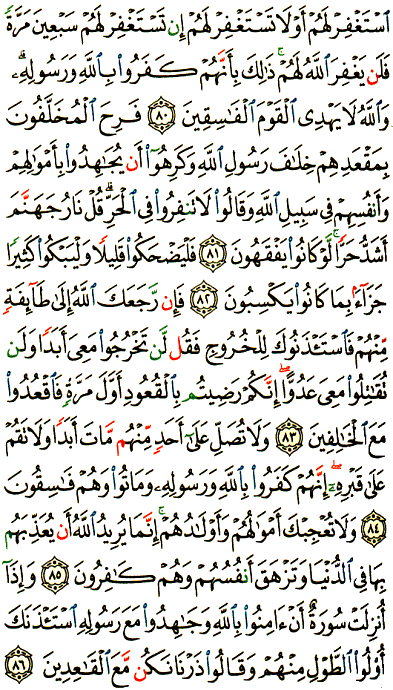 ٱسْتَغْفِرْ لَهُمْ أَوْ لَا تَسْتَغْفِرْ لَهُمْ إِن تَسْتَغْفِرْ لَهُمْ سَبْعِينَ مَرَّةً
فَلَن يَغْفِرَ ٱللَّهُ لَهُمْ ۚ ذَٰلِكَ بِأَنَّهُمْ كَفَرُوا۟ بِٱللَّهِ وَرَسُولِهِۦ ۗ
وَٱللَّهُ لَا يَهْدِى ٱلْقَوْمَ ٱلْفَٰسِقِينَ ٨٠ فَرِحَ ٱلْمُخَلَّفُونَ
بِمَقْعَدِهِمْ خِلَٰفَ رَسُولِ ٱللَّهِ وَكَرِهُوٓا۟ أَن يُجَٰهِدُوا۟ بِأَمْوَٰلِهِمْ
وَأَنفُسِهِمْ فِى سَبِيلِ ٱللَّهِ وَقَالُوا۟ لَا تَنفِرُوا۟ فِى ٱلْحَرِّ ۗ قُلْ نَارُ جَهَنَّمَ
أَشَدُّ حَرًّا ۚ لَّوْ كَانُوا۟ يَفْقَهُونَ ٨١ فَلْيَضْحَكُوا۟ قَلِيلًا وَلْيَبْكُوا۟ كَثِيرًا
جَزَآءًۢ بِمَا كَانُوا۟ يَكْسِبُونَ ٨٢ فَإِن رَّجَعَكَ ٱللَّهُ إِلَىٰ طَآئِفَةٍ
مِّنْهُمْ فَٱسْتَـْٔذَنُوكَ لِلْخُرُوجِ فَقُل لَّن تَخْرُجُوا۟ مَعِىَ أَبَدًا وَلَن
تُقَٰتِلُوا۟ مَعِىَ عَدُوًّا ۖ إِنَّكُمْ رَضِيتُم بِٱلْقُعُودِ أَوَّلَ مَرَّةٍ فَٱقْعُدُوا۟
مَعَ ٱلْخَٰلِفِينَ ٨٣ وَلَا تُصَلِّ عَلَىٰٓ أَحَدٍ مِّنْهُم مَّاتَ أَبَدًا وَلَا تَقُمْ
عَلَىٰ قَبْرِهِۦٓ ۖ إِنَّهُمْ كَفَرُوا۟ بِٱللَّهِ وَرَسُولِهِۦ وَمَاتُوا۟ وَهُمْ فَٰسِقُونَ
٨٤ وَلَا تُعْجِبْكَ أَمْوَٰلُهُمْ وَأَوْلَٰدُهُمْ ۚ إِنَّمَا يُرِيدُ ٱللَّهُ أَن يُعَذِّبَهُم
بِهَا فِى ٱلدُّنْيَا وَتَزْهَقَ أَنفُسُهُمْ وَهُمْ كَٰفِرُونَ ٨٥ وَإِذَآ
أُنزِلَتْ سُورَةٌ أَنْ ءَامِنُوا۟ بِٱللَّهِ وَجَٰهِدُوا۟ مَعَ رَسُولِهِ ٱسْتَـْٔذَنَكَ
أُو۟لُوا۟ ٱلطَّوْلِ مِنْهُمْ وَقَالُوا۟ ذَرْنَا نَكُن مَّعَ ٱلْقَٰعِدِينَ ٨٦